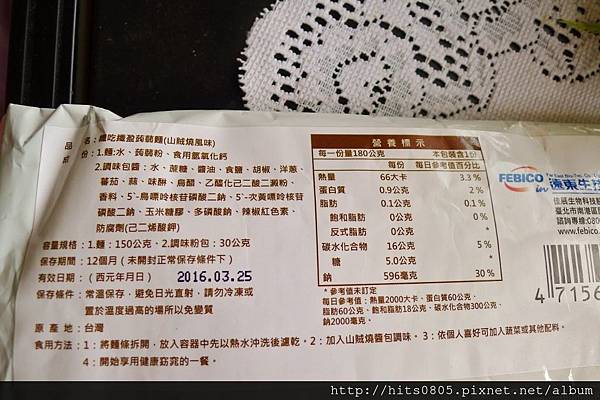 品 名：纖吃纖盈蒟蒻麵(山賊燒風味)
成 份：1.麵:水、蒟蒻粉、食用氫氧化鈣
2.調味包醬：水、蔗糖、醬油、食鹽、胡椒、洋蔥、
蕃茄、蒜、味醂、烏醋、乙醯化己二酸二澱粉、
香料、5'-鳥嘌呤核苷磷酸二鈉、5'-次黃嘌呤核苷
磷酸二鈉、玉米糖膠、多磷酸鈉、辣椒紅色素、
防腐劑(己二烯酸鉀)
容量規格：1.麵：150公克、2.調味粉包：30公克
保存期間：12個月(未開封正常保存條件下)
有效日期：(西元年月日) 2016.03.25
保存條件：常溫保存，避免日光直射，請勿冷凍或
置於溫度過高的場所以免變質
原 產 地：台灣
食用方法：1：將麵條拆開，放入容器中先以熱水沖洗後濾乾。2：加入山賊燒醬包調味。3：依個人喜好可加入蔬菜或其他配料。
4：開始享用健康窈窕的一餐。
營養標示
每一份量180公克 本包裝含1份
每份 每日參考值百分比
熱量 66大卡 3.3%
蛋白質 0.9公克 2%
脂肪 0.1公克 0.1%
飽和脂肪 0公克 0%
反式脂肪 0公克 *
碳水化合物 16公克 5%
糖 5.0公克 *
鈉 596毫克 30%
* 參考值未訂定
每日參考值：熱量2000大卡、蛋白質60公克、
脂肪60公克、飽和脂肪18公克、碳水化合物300公克、
鈉2000毫克。
FEBICO
遠東生技
佳展生物科技股
臺北市南港區
諮詢專線:080
www.febico.
4 7156
http://hits0805.pixnet.net/album